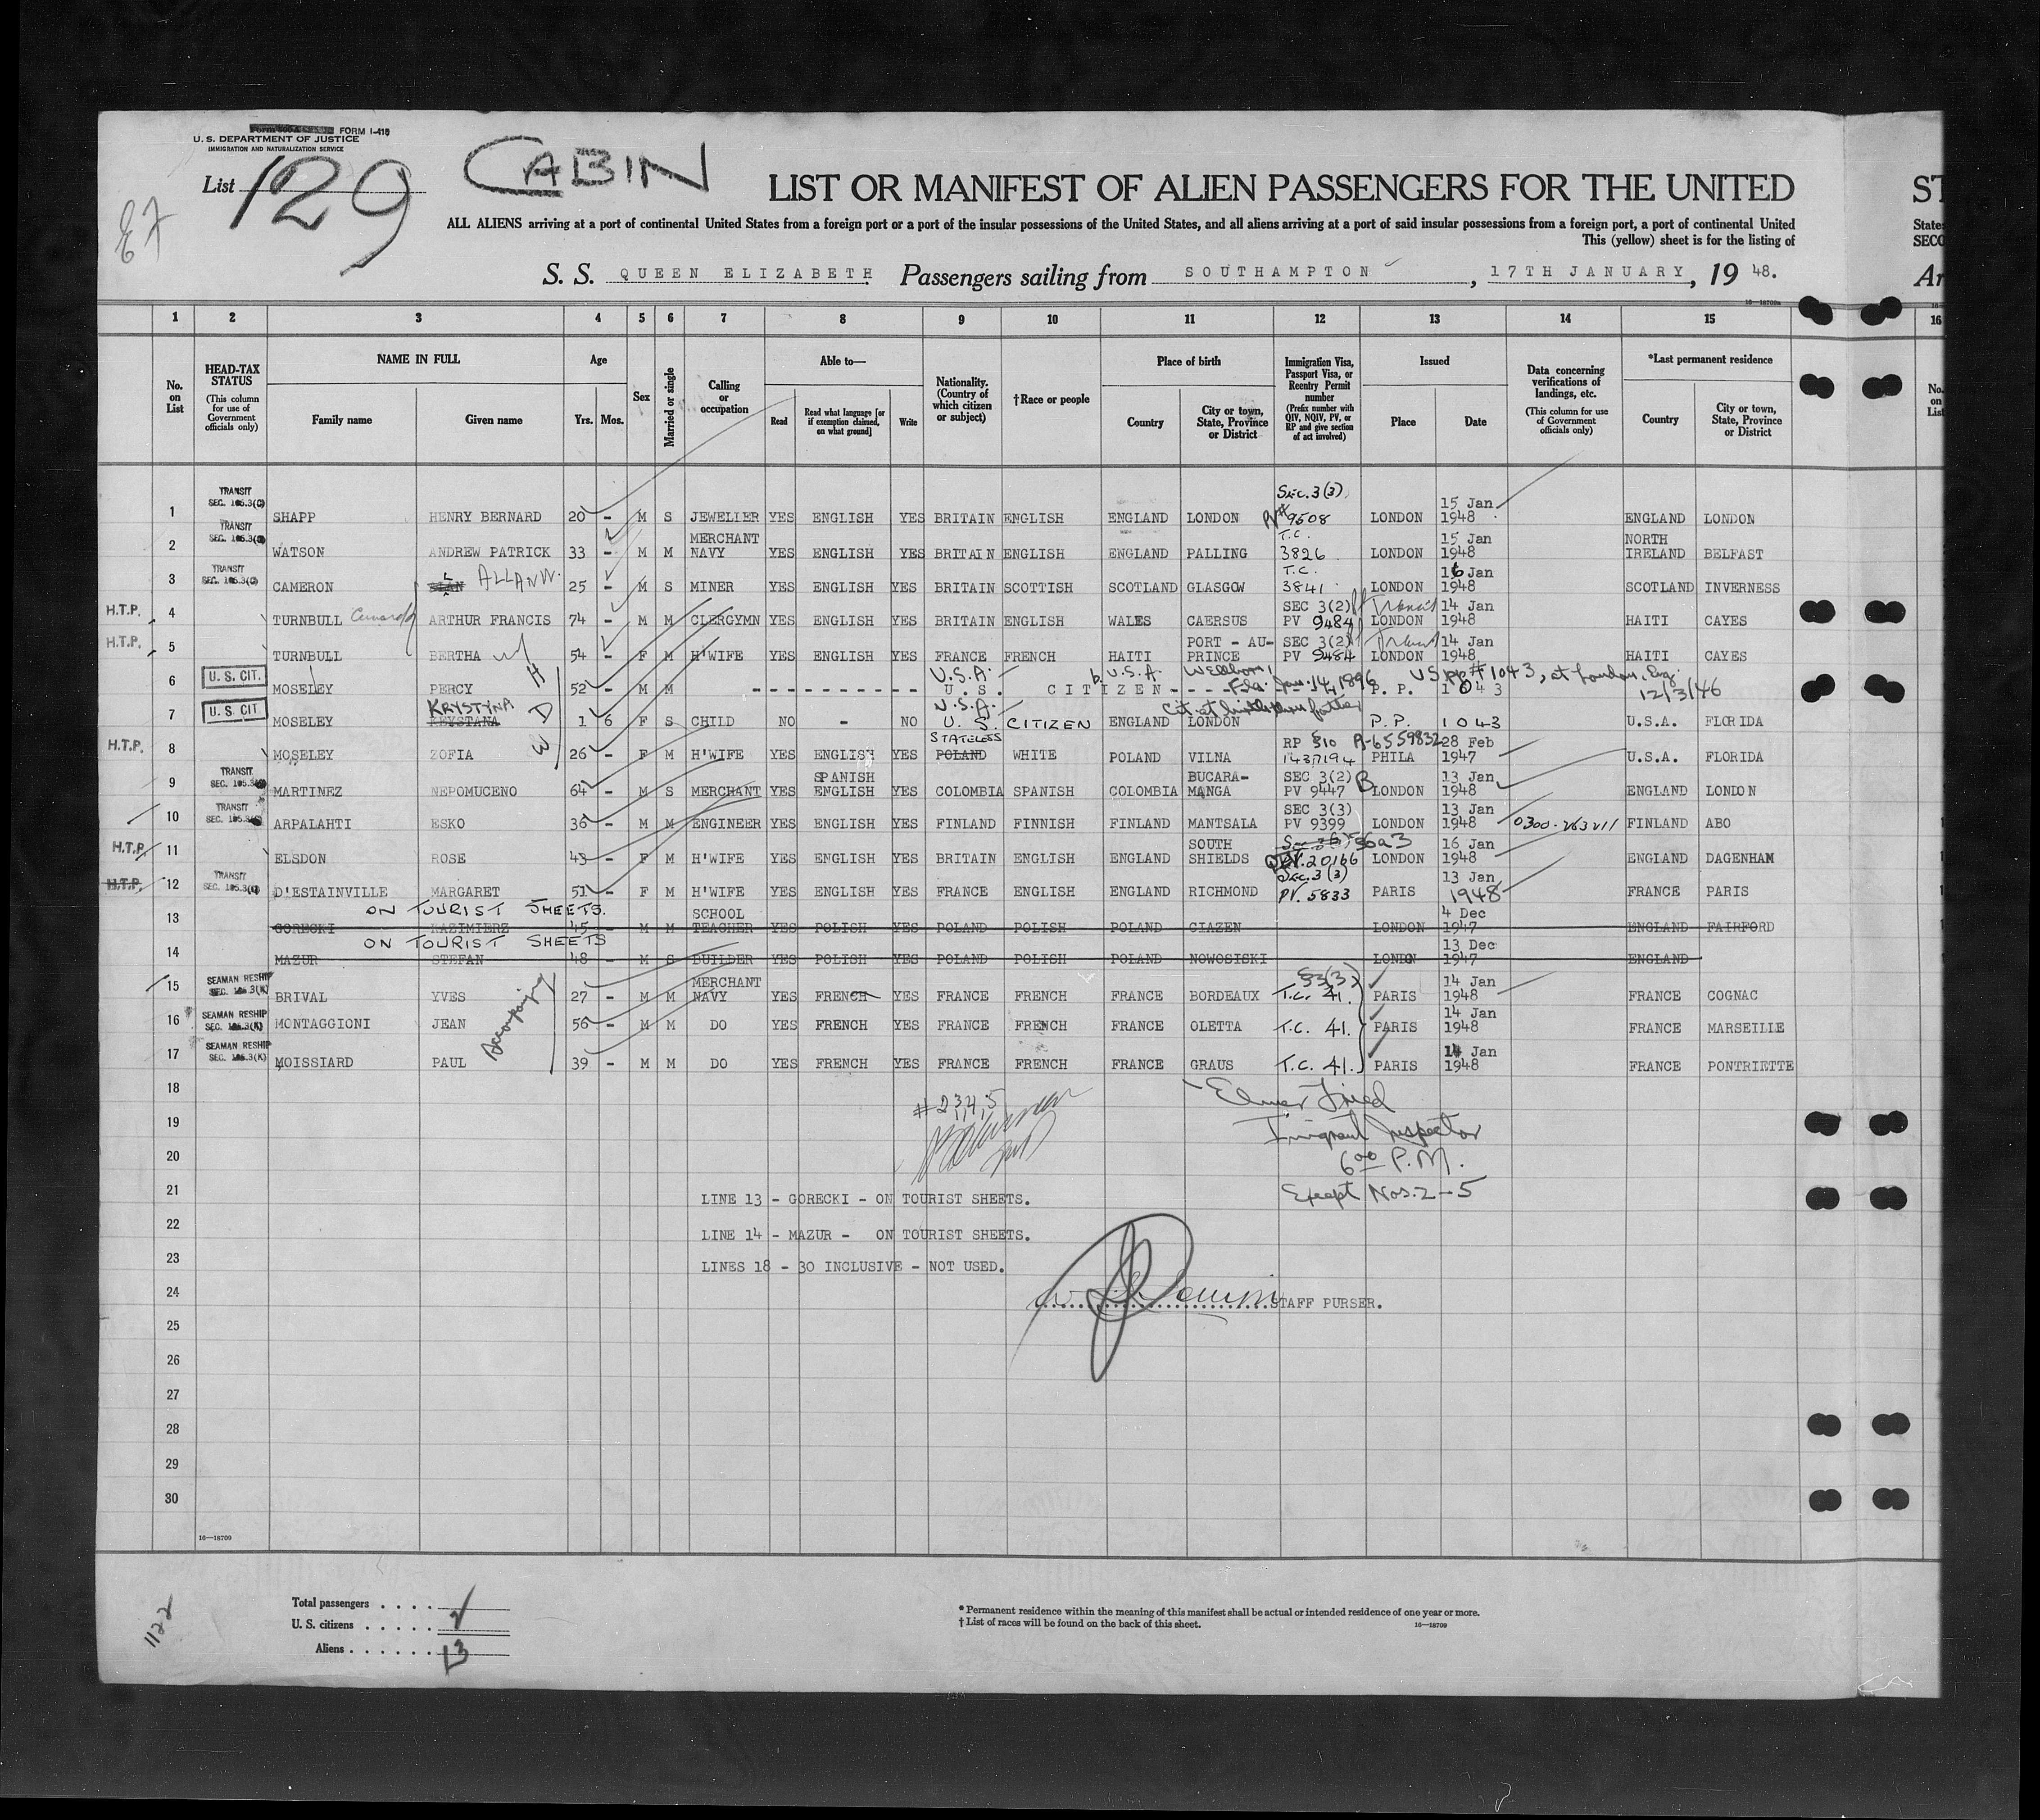 Form 500A FORM I-418
U. S. DEPARTMENT OF JUSTICE
IMMIGRATION AND NATURALIZATION SERVICE
List 129
CABIN
LIST OR MANIFEST OF ALIEN PASSENGERS FOR THE UNITED
ST
ALL ALIENS arriving at a port of continental United States from a foreign port or a port of the insular possessions of the United States, and all aliens arriving at a port of said insular possessions from a foreign port, a port of continental United
States
This (yellow) sheet is for the listing of
SECO
S. S. QUEEN ELIZABETH Passengers sailing from SOUTHAMPTON, 17TH JANUARY, 19 48.
Ar
16—18709a
1 2 3 4 5 6 7 8 9 10 11 12 13 14 15 16
No. on List
HEAD-TAX STATUS (This column for use of Government officials only)
NAME IN FULL Family name Given name
Age Yrs. Mos.
Sex
Married or single
Calling or occupation
Able to— Read Read what language [or if exemption claimed, on what ground] Write
Nationality. (Country of which citizen or subject)
†Race or people
Place of birth Country City or town, State, Province or District
Immigration Visa, Passport Visa, or Reentry Permit number (Prefix number with QIV, NQIV, PV, or RP and give section of act involved)
Issued Place Date
Data concerning verifications of landings, etc. (This column for use of Government officials only)
*Last permanent residence Country City or town, State, Province or District
No. on List
1 TRANSIT SEC. 105.3(C) SHAPP HENRY BERNARD 20 - M S JEWELLER YES ENGLISH YES BRITAIN ENGLISH ENGLAND LONDON Sec. 3(3) 9508 LONDON 15 Jan 1948 ENGLAND LONDON
2 TRANSIT SEC. 105.3(C) WATSON ANDREW PATRICK 33 - M M MERCHANT NAVY YES ENGLISH YES BRITAIN ENGLISH ENGLAND PALLING T.C. 3826 LONDON 15 Jan 1948 NORTH IRELAND BELFAST
3 TRANSIT SEC. 105.3(C) CAMERON ALLAN W. 25 - M S MINER YES ENGLISH YES BRITAIN SCOTTISH SCOTLAND GLASGOW T.C. 3841 LONDON 16 Jan 1948 SCOTLAND INVERNESS
H.T.P. 4 TURNBULL ARTHUR FRANCIS 74 - M M CLERGYMN YES ENGLISH YES BRITAIN ENGLISH WALES CAERSUS SEC 3(2) PV 9484 Transit LONDON 14 Jan 1948 HAITI CAYES
H.T.P. 5 TURNBULL BERTHA 54 - F M H'WIFE YES ENGLISH YES FRANCE FRENCH HAITI PORT - AU- PRINCE SEC 3(2) PV 9484 Transit LONDON 14 Jan 1948 HAITI CAYES
6 U. S. CIT. MOSELEY PERCY H 52 - M M - - - - - - - - - - - - U.S.A. U. S. CITIZEN - - - - b. U.S.A. Wellborn, Fla. Jan. 14, 1896 P. P. 1043 US pp # 1043, at London, Eng. 12/3/46
7 U. S. CIT MOSELEY KRYSTYNA KEYSTANA D 1 6 F S CHILD NO - NO U.S.A. U. S. CITIZEN ENGLAND LONDON Cit. at birth thru father P.P. 1043 U.S.A. FLORIDA
H.T.P. 8 MOSELEY ZOFIA 26 - F M H'WIFE YES ENGLISH YES STATELESS POLAND WHITE POLAND VILNA RP 1437194 A-6559832 PHILA 28 Feb 1947 U.S.A. FLORIDA
9 TRANSIT SEC. 105.3(C) MARTINEZ NEPOMUCENO 64 - M S MERCHANT YES SPANISH ENGLISH YES COLOMBIA SPANISH COLOMBIA BUCARA- MANGA SEC 3(2) PV 9447 LONDON 13 Jan 1948 ENGLAND LONDON
10 TRANSIT SEC. 105.3(C) ARPALAHTI ESKO 36 - M M ENGINEER YES ENGLISH YES FINLAND FINNISH FINLAND MANTSALA SEC 3(3) PV 9399 LONDON 13 Jan 1948 FINLAND ABO
H.T.P. 11 ELSDON ROSE 43 - F M H'WIFE YES ENGLISH YES BRITAIN ENGLISH ENGLAND SOUTH SHIELDS 20166 LONDON 16 Jan 1948 ENGLAND DAGENHAM
H.T.P. 12 TRANSIT SEC. 105.3(C) D'ESTAINVILLE MARGARET 51 - F M H'WIFE YES ENGLISH YES FRANCE ENGLISH ENGLAND RICHMOND Sec. 3(3) PV. 5833 PARIS 13 Jan 1948 FRANCE PARIS
ON TOURIST SHEETS.
13 GORECKI KAZIMIERZ 45 - M M SCHOOL TEACHER YES POLISH YES POLAND POLISH POLAND CIAZEN LONDON 4 Dec 1947 ENGLAND FAIRFORD
ON TOURIST SHEETS
14 MAZUR STEFAN 48 - M S BUILDER YES POLISH YES POLAND POLISH POLAND NOWOSISKI LONDON 13 Dec 1947 ENGLAND
15 SEAMAN RESHIP SEC. 105.3(K) BRIVAL YVES 27 - M M MERCHANT NAVY YES FRENCH YES FRANCE FRENCH FRANCE BORDEAUX §3(3) T.C. 41. PARIS 14 Jan 1948 FRANCE COGNAC
16 SEAMAN RESHIP SEC. 105.3(K) MONTAGGIONI JEAN Accompanying 56 - M M DO YES FRENCH YES FRANCE FRENCH FRANCE OLETTA T.C. 41. PARIS 14 Jan 1948 FRANCE MARSEILLE
17 SEAMAN RESHIP SEC. 105.3(K) MOISSIARD PAUL 39 - M M DO YES FRENCH YES FRANCE FRENCH FRANCE GRAUS T.C. 41. PARIS 14 Jan 1948 FRANCE PONTRIETTE
18
# 2,3,4,5
Elmer Fried
19
Imigrant Inspector
20
6 00 P.M.
21 LINE 13 - GORECKI - ON TOURIST SHEETS.
Except Nos. 2-5
22 LINE 14 - MAZUR - ON TOURIST SHEETS.
23 LINES 18 - 30 INCLUSIVE - NOT USED.
24 STAFF PURSER.
25
26
27
28
29
30
16—18709
Total passengers . . . .
U. S. citizens . . . . . 2
Aliens . . . . . . 13
1122
* Permanent residence within the meaning of this manifest shall be actual or intended residence of one year or more.
† List of races will be found on the back of this sheet.
16—18709